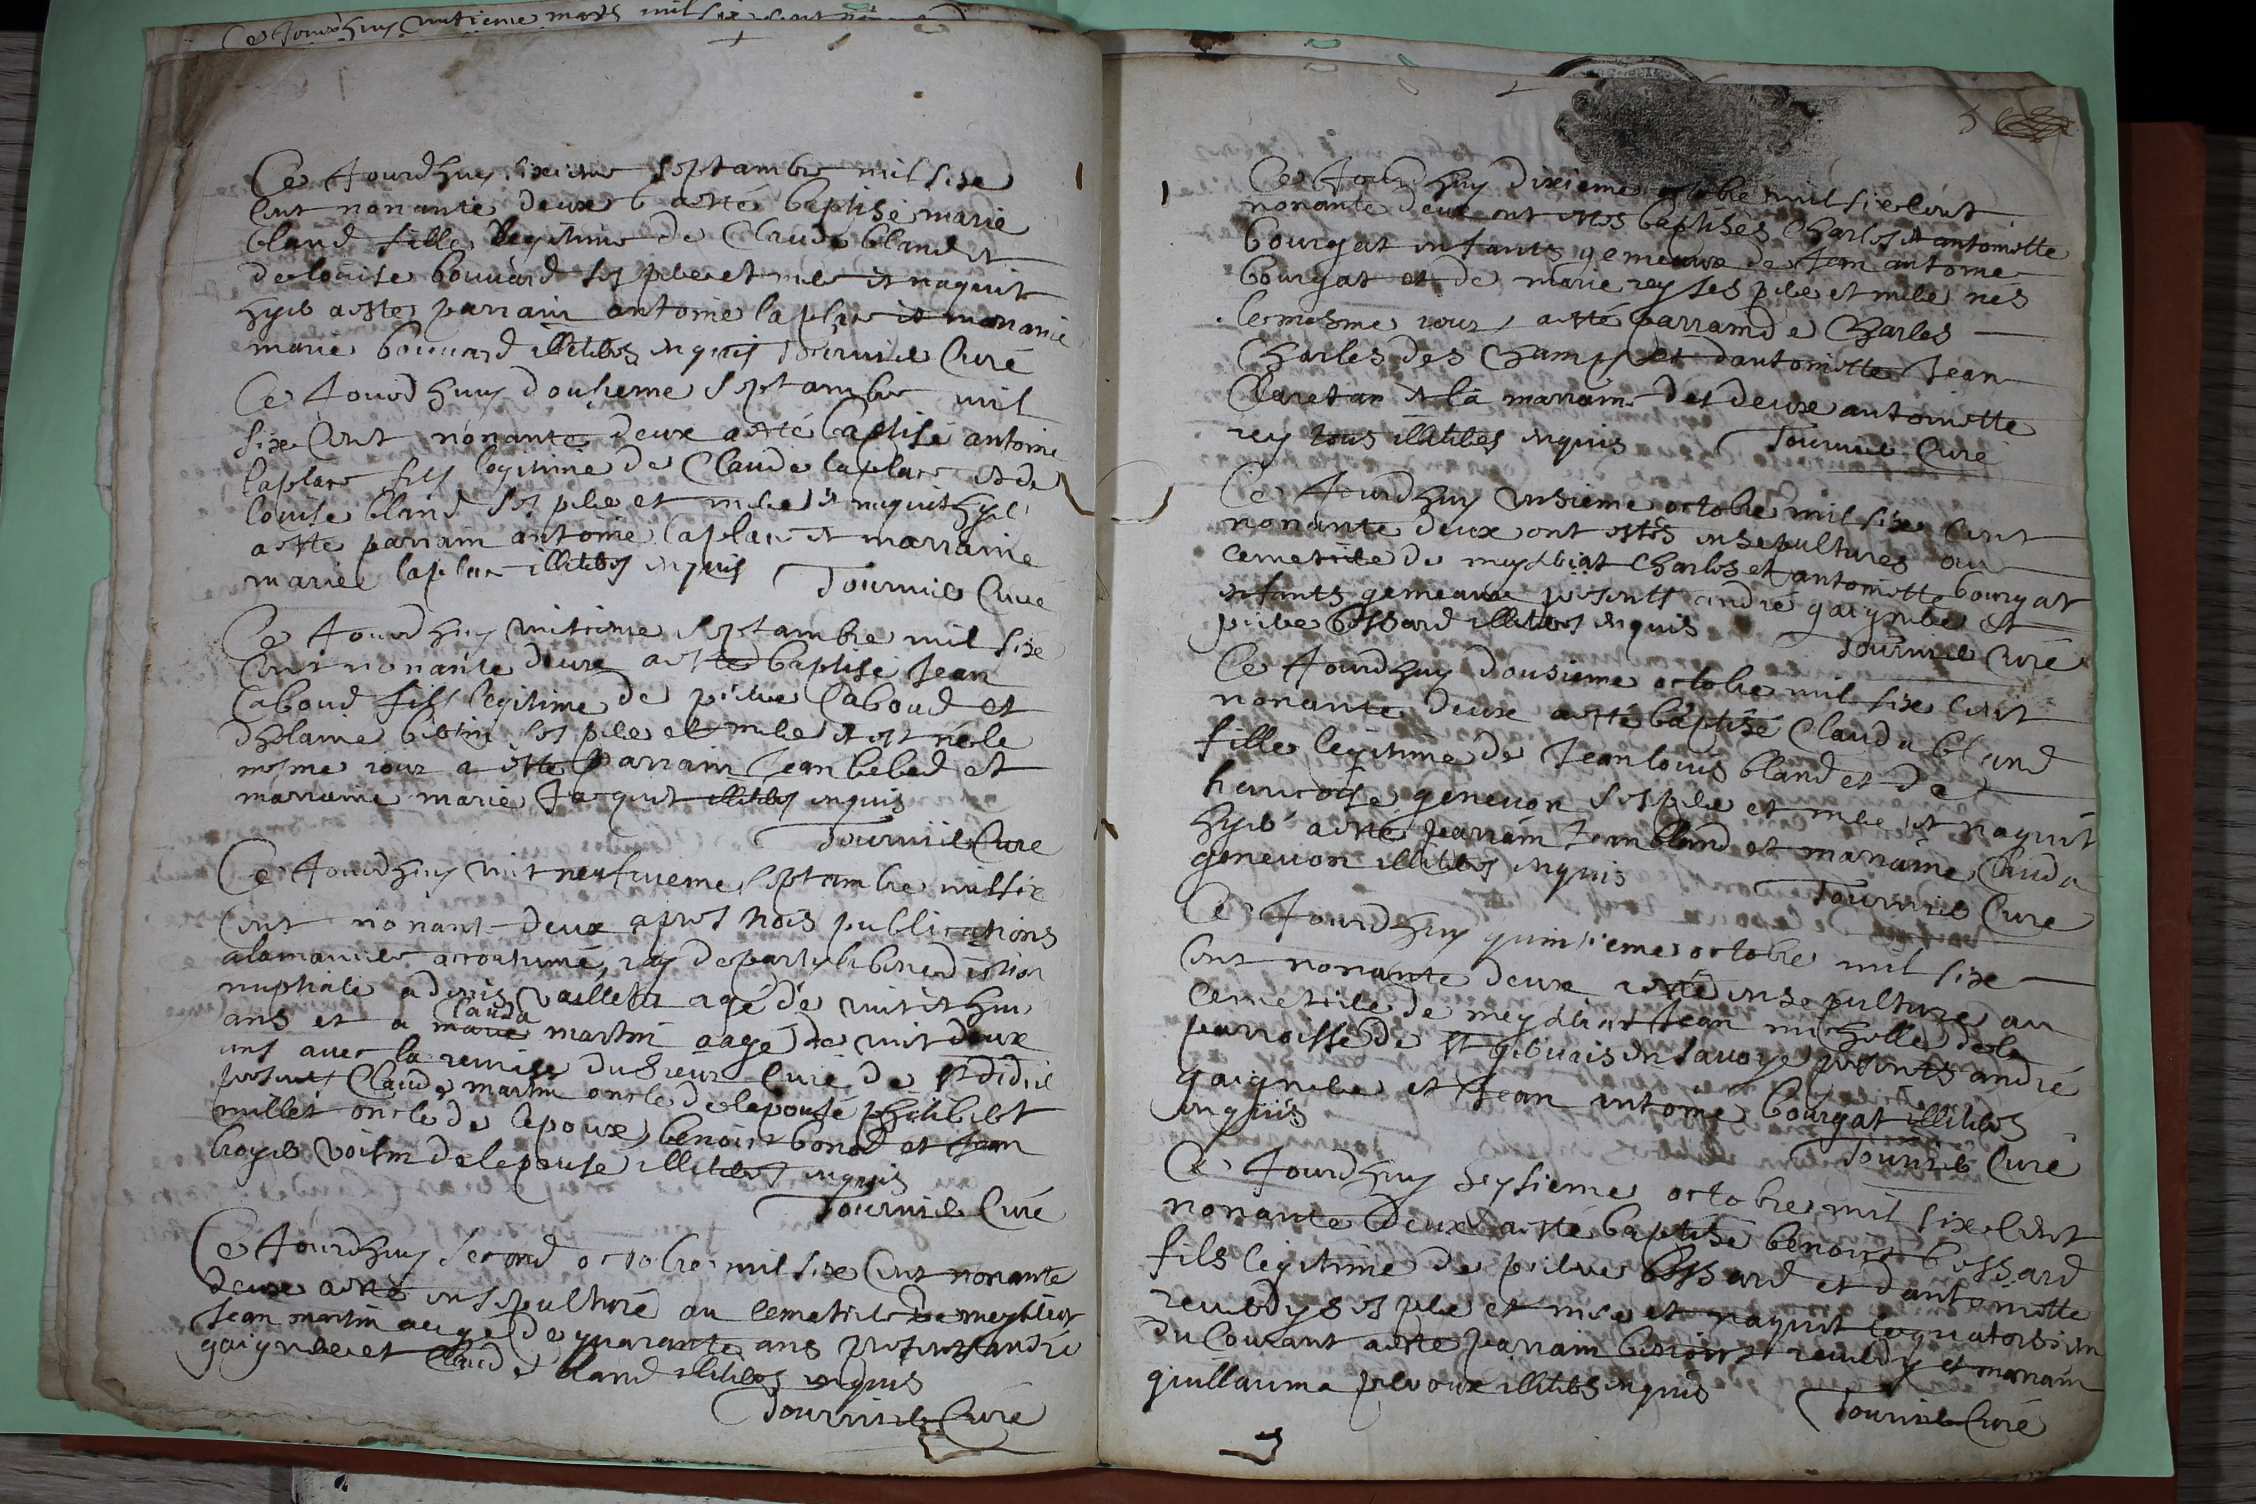 Ce Jourdhuy vintieme mars mil six cent
Ce Jourdhuy sixieme septambre mil sixe
cent nonante deuxe a esté baptisé marie
bland fille legitime de Claude bland et
de louise bouuard ses pere et mere et naquit
hyer a este parrain antoine laplace et marraine
marie bouuard illiteres enquis Tournier Curé
Ce Jourdhuy dousieme septambre mil
sixe cent nonante deuxe a esté baptisé antoine
laplace fils legitime de Claude laplace et de
louise bland ses pere et mere et naquit hyer
a este parrain antoine laplace et marraine
marie laplace illiteres enquis Tournier Curé
Ce Jourdhuy vintieme septambre mil sixe
cent nonante deuxe a esté baptisé Jean
Caboud fils legitime de pierre Caboud et
ses pere et mere et est né le
mesme iour a este parrain Jean bebed et
marraine marie Jacquet illiteres enquis
Tournier Curé
Ce Jourdhuy vint neufuieme septambre mil six
cent nonant deux apres trois publications
a la maniere accoutumé, iay departy la benediction
nuptiale a denis vaillet agé de vint et huit
ans et a marie Clauda martin aagé de vint deux
ans auec la remise du sieur Curé de st didier
presents Claude martin oncle de lepouse philibert
millet oncle de lepoux, benoist bonod et Jean
broyer voisin de lepouse illiteres enquis
Tournier Curé
Ce Jourdhuy second octobre mil sixe cent nonante
deuxe a esté ensepulturé au cemetiere de meysbiat
Jean martin aagé de quarante ans presents andré
gaigniere et Claude bland illiteres enquis
Tournier Curé
5
Ce Jourdhuy dixieme octobre mil sixe cent
nonante deux ont estes baptisés Charles et antoinette
bourgat enfants gemeaux de Jean antoine
bourgat et de marie rey ses pere et mere nés
le mesme iour, a esté parrain de Charles
Charles des Champs et dantoinette Jean
Claretan et la marraine des deuxe antoinette
rey tous illiteres enquis Tournier Curé
Ce Jourdhuy unsieme octobre mil sixe cent
nonante deux ont estés ensepulturés au
cemetiere de meysbiat Charles et antoinette bourgat
enfants gemeaux presents andré gaigniere et
pierre bossard illiteres enquis
Tournier Curé
Ce Jourdhuy dousieme octobre mil sixe cent
nonante deuxe a esté baptisé Clauda bland
fille legitime de Jean louis bland et de
francoise geneuon ses pere et mere et naquit
hyer a este parrain Jean bland et marraine Clauda
geneuon illiteres enquis Tournier Curé
Ce Jourdhuy quinsieme octobre mil sixe
cent nonante deuxe a esté ensepulturé au
cemetiere de meysbiat Jean michelle de la
parroisse de st geruais en sauoye presents andré
gaigniere et Jean antoine bourgat illiteres
enquis
Tournier Curé
Ce Jourdhuy seysieme octobre mil sixe cent
nonante deux a esté baptisé benoist bossard
fils legitime de pierre bossard et dantoinette
reuerdy ses pere et mere et naquit le quatorsieme
du Courant a este parrain benoist reuerdy et marraine
guillauma preuoux illiteres enquis
Tournier Curé